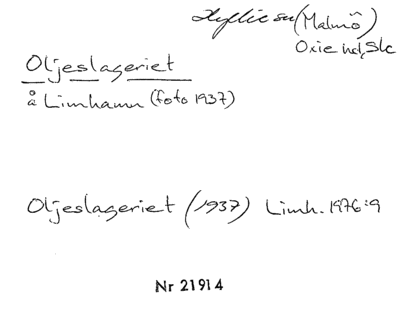 Hyllie sn (Malmö)
Oxie hd, Sk
Oljeslageriet
å Limhamn (foto 1937)
Oljeslageriet (1937) Limh. 1976:9
Nr 21914